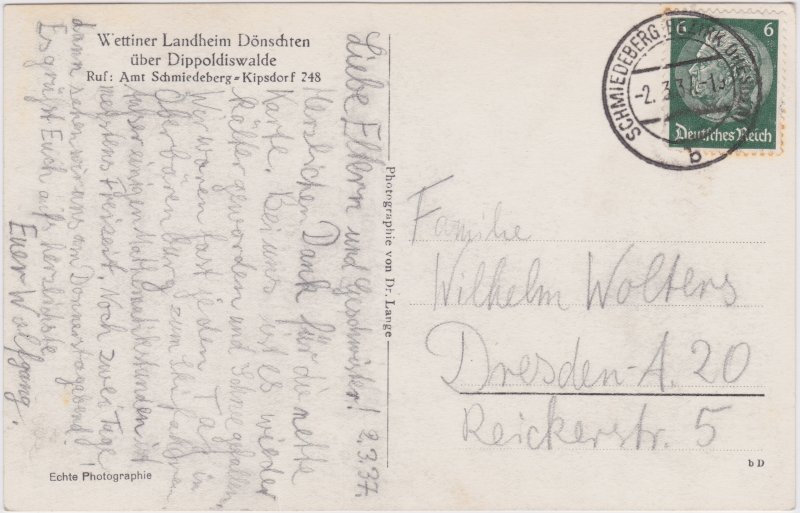 Wettiner Landheim Dönschten
über Dippoldiswalde
Ruf: Amt Schmiedeberg-Kipsdorf 248
Liebe Eltern und Geschwister! 2.3.37.
Herzlichen Dank für die nette
Karte. Bei uns ist es wieder
kälter geworden und Schnee gefallen.
Wir waren fast jeden Tag in
Oberbärenburg zum Skifahren.
Ausser einigen Mathematikstunden ist
meistens Freizeit. Noch zwei Tage
dann sehen wir uns am Donnerstagabend!
Es grüßt Euch aufs herzlichste
Euer Wolfgang.
Echte Photographie
Photographie von Dr. Lange
SCHMIEDEBERG BEZIRK DRESDEN
-2.3.37
b
6 6
Deutsches Reich
Familie
Wilhelm Wolters
Dresden-A. 20
Reickerstr. 5
b D